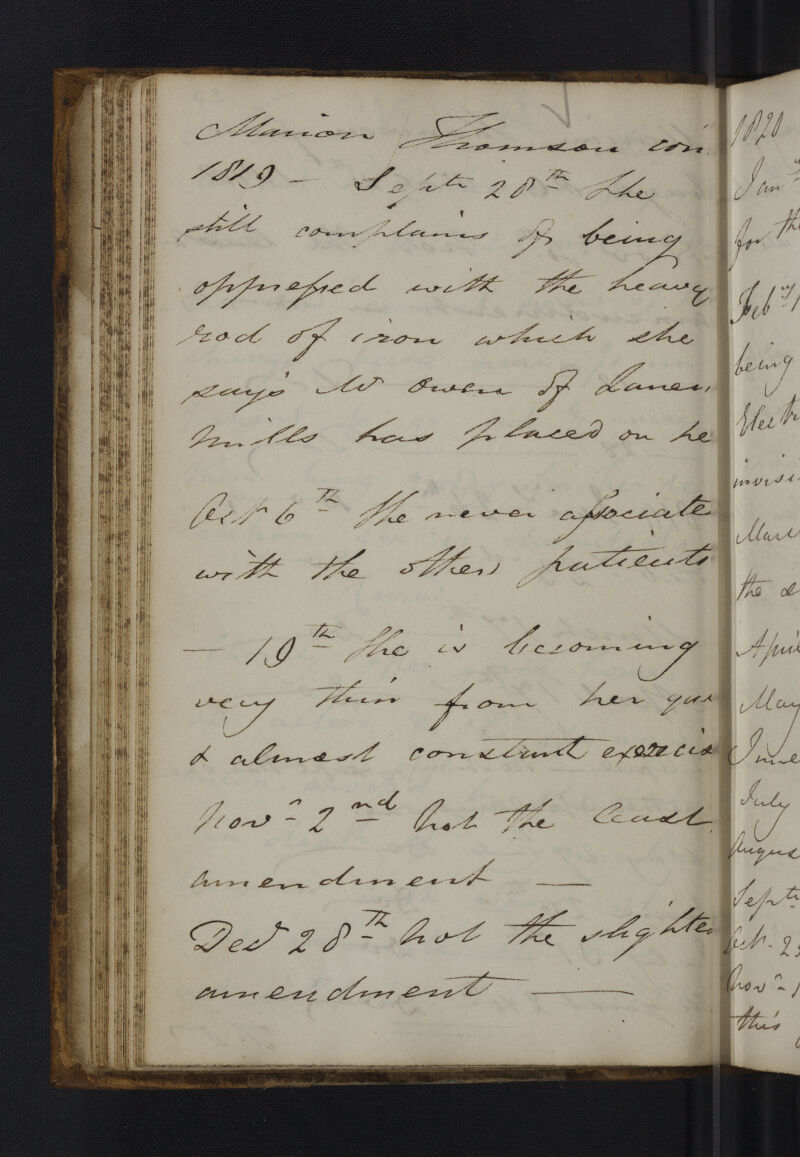 Marion Thomson con
1819 - Septr 28th She
still complains of being
oppressed with the heavy
rod of iron which she
says Mr Owen of Laner
Mills has placed on he
Octr 6th She never associate
with the other patients
— 19th She is becoming
very thin from her
& almost constant exercis
Novr 2nd Not the least
amendment —
Decr 28th Not the slightes
amendment —
1820
Jany
for the
Feby 1
being
Electr
invisi
Marc
the
April
May
June
July
August
Septr
Octr - 2
Novr - 1
this